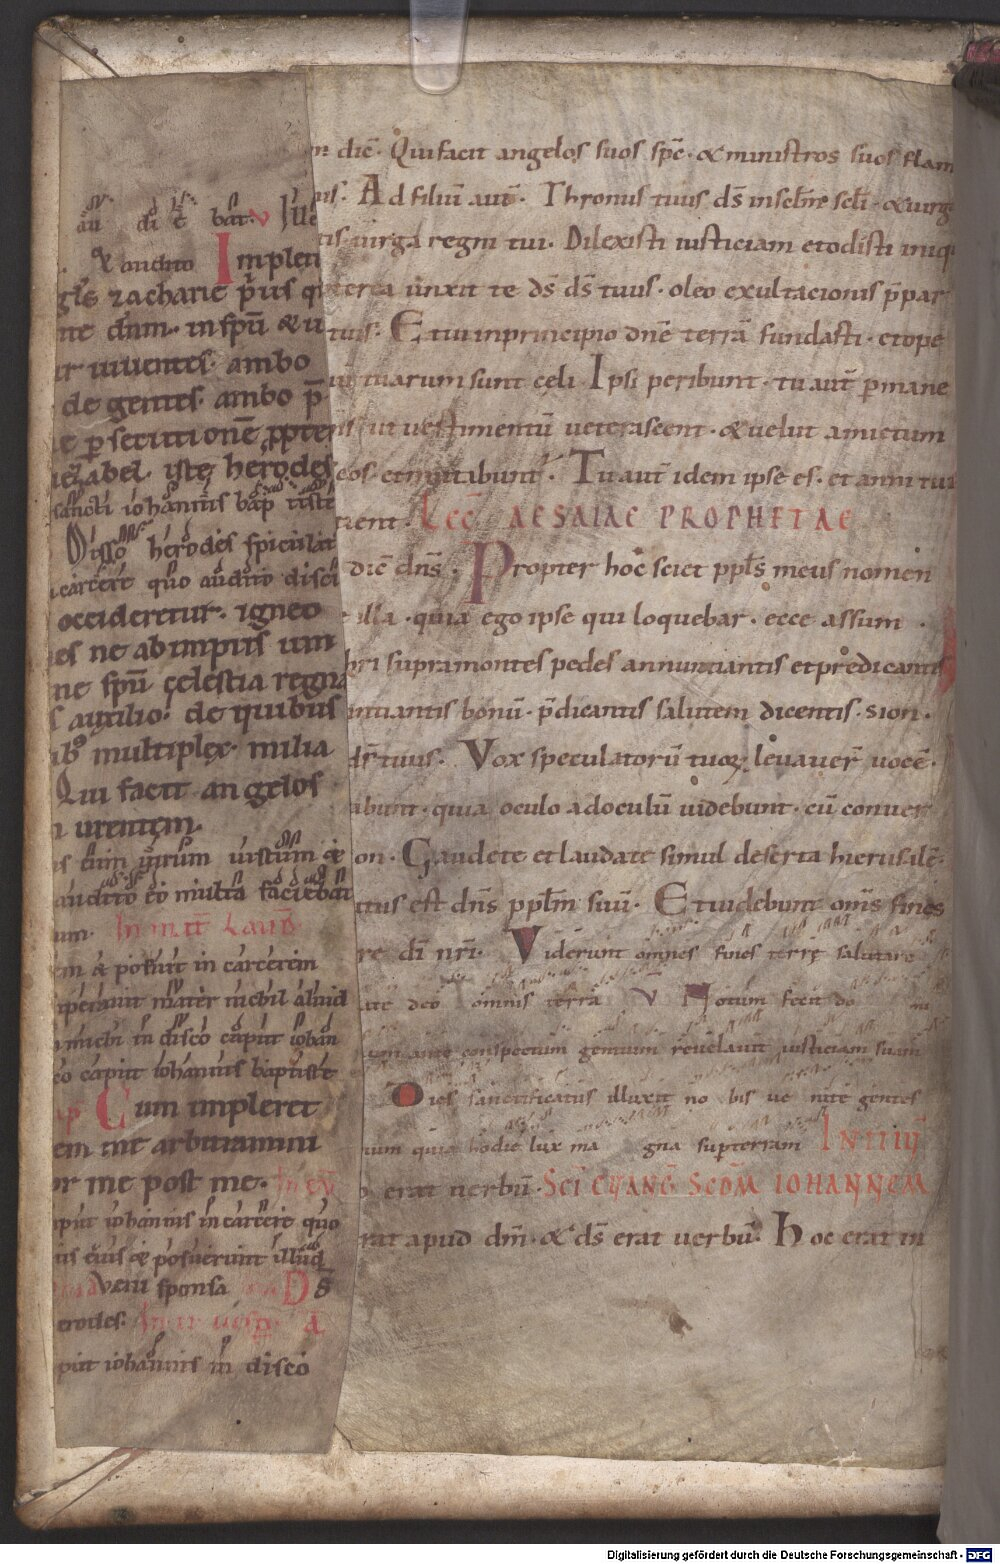 au di e bat. V Ille
& audito Implen
gl's zacharie p̄us q
ne dnm. in spū & u
ur uiuentes. ambo
de gentes. ambo p̄
e p̱secutionē ꝓpte
iezabel. iste herodes
sancti iohannis bap tiste
Disso herodes spiculat
carcere quo audito disci
occideretur. igneo
es ne ab impiis um
ne spū cęlestia regna
s auxilio: de quibus
multiplex. milia
Qui facit angelos
urentem.
audito eo multa faciebat
um. In mat Laud
em & posuit in carcerem
mperauit mater nichil aliud
michi in disco caput iohan
eo caput iohannis baptiste
Cum impleret
em me arbitramini
or me post me. In eu
put iohannis in carcere quo
us eius & posuerunt illud
Veni sponsa D s
erodes: In
put iohannis in disco
dic̄. Qui facit angelos suos sp̄c. & ministros suos flam
nis. Ad filiū aut̄. Thronus tuus ds̄ in sclm̄ scli. & uirg
tis uirga regni tui. Dilexisti iusticiam et odisti iniq
terea unxit te ds̄ ds̄ tuus. oleo exultacionis p̄ par
tuis. Et tu in principio dnē terrā fundasti. et ope
tuarum sunt cęli. Ipsi peribunt. tu aut̄ p̱mane
ut uestimentū ueterascent. & uelut amictum
eos. et mutabuntˀ. Tu aut̄ idem ipse es. et anni tui
cient. Lec̄ AESAIAE PROPHETAE
dic̄ dns̄. Propter hoc sciet ppl's meus nomen
illa. quia ego ipse qui loquebar. ecce assum.
hri supra montes pedes annuntiantis et predicantis
nuntiantis bonū. p̄dicantis salutem dicentis. sion.
ds̄ tuus. Vox speculatorū tuoꝝ leuauer̄ uocē.
abunt. quia oculo ad oculū uidebunt. cū conuer
on. Gaudete et laudate simul deserta hierusalē.
atus est dns̄ ppl̄m suū. Et uidebunt om̄s fines
re di nri. Viderunt omnes fines terrę salutare
ate deo omnis terra V Notum fecit do mi
ante conspectum gentium reuelauit iusticiam suam
Dies sanctificatus illuxit no bis ue nite gentes
num quia hodie lux ma gna sup terram INITIŪ
erat uerbū. SCI EVANḠ SCDM̄ IOHANNEM
rat apud dm̄. & ds̄ erat uerbū. Hoc erat in
Digitalisierung gefördert durch die Deutsche Forschungsgemeinschaft - DFG